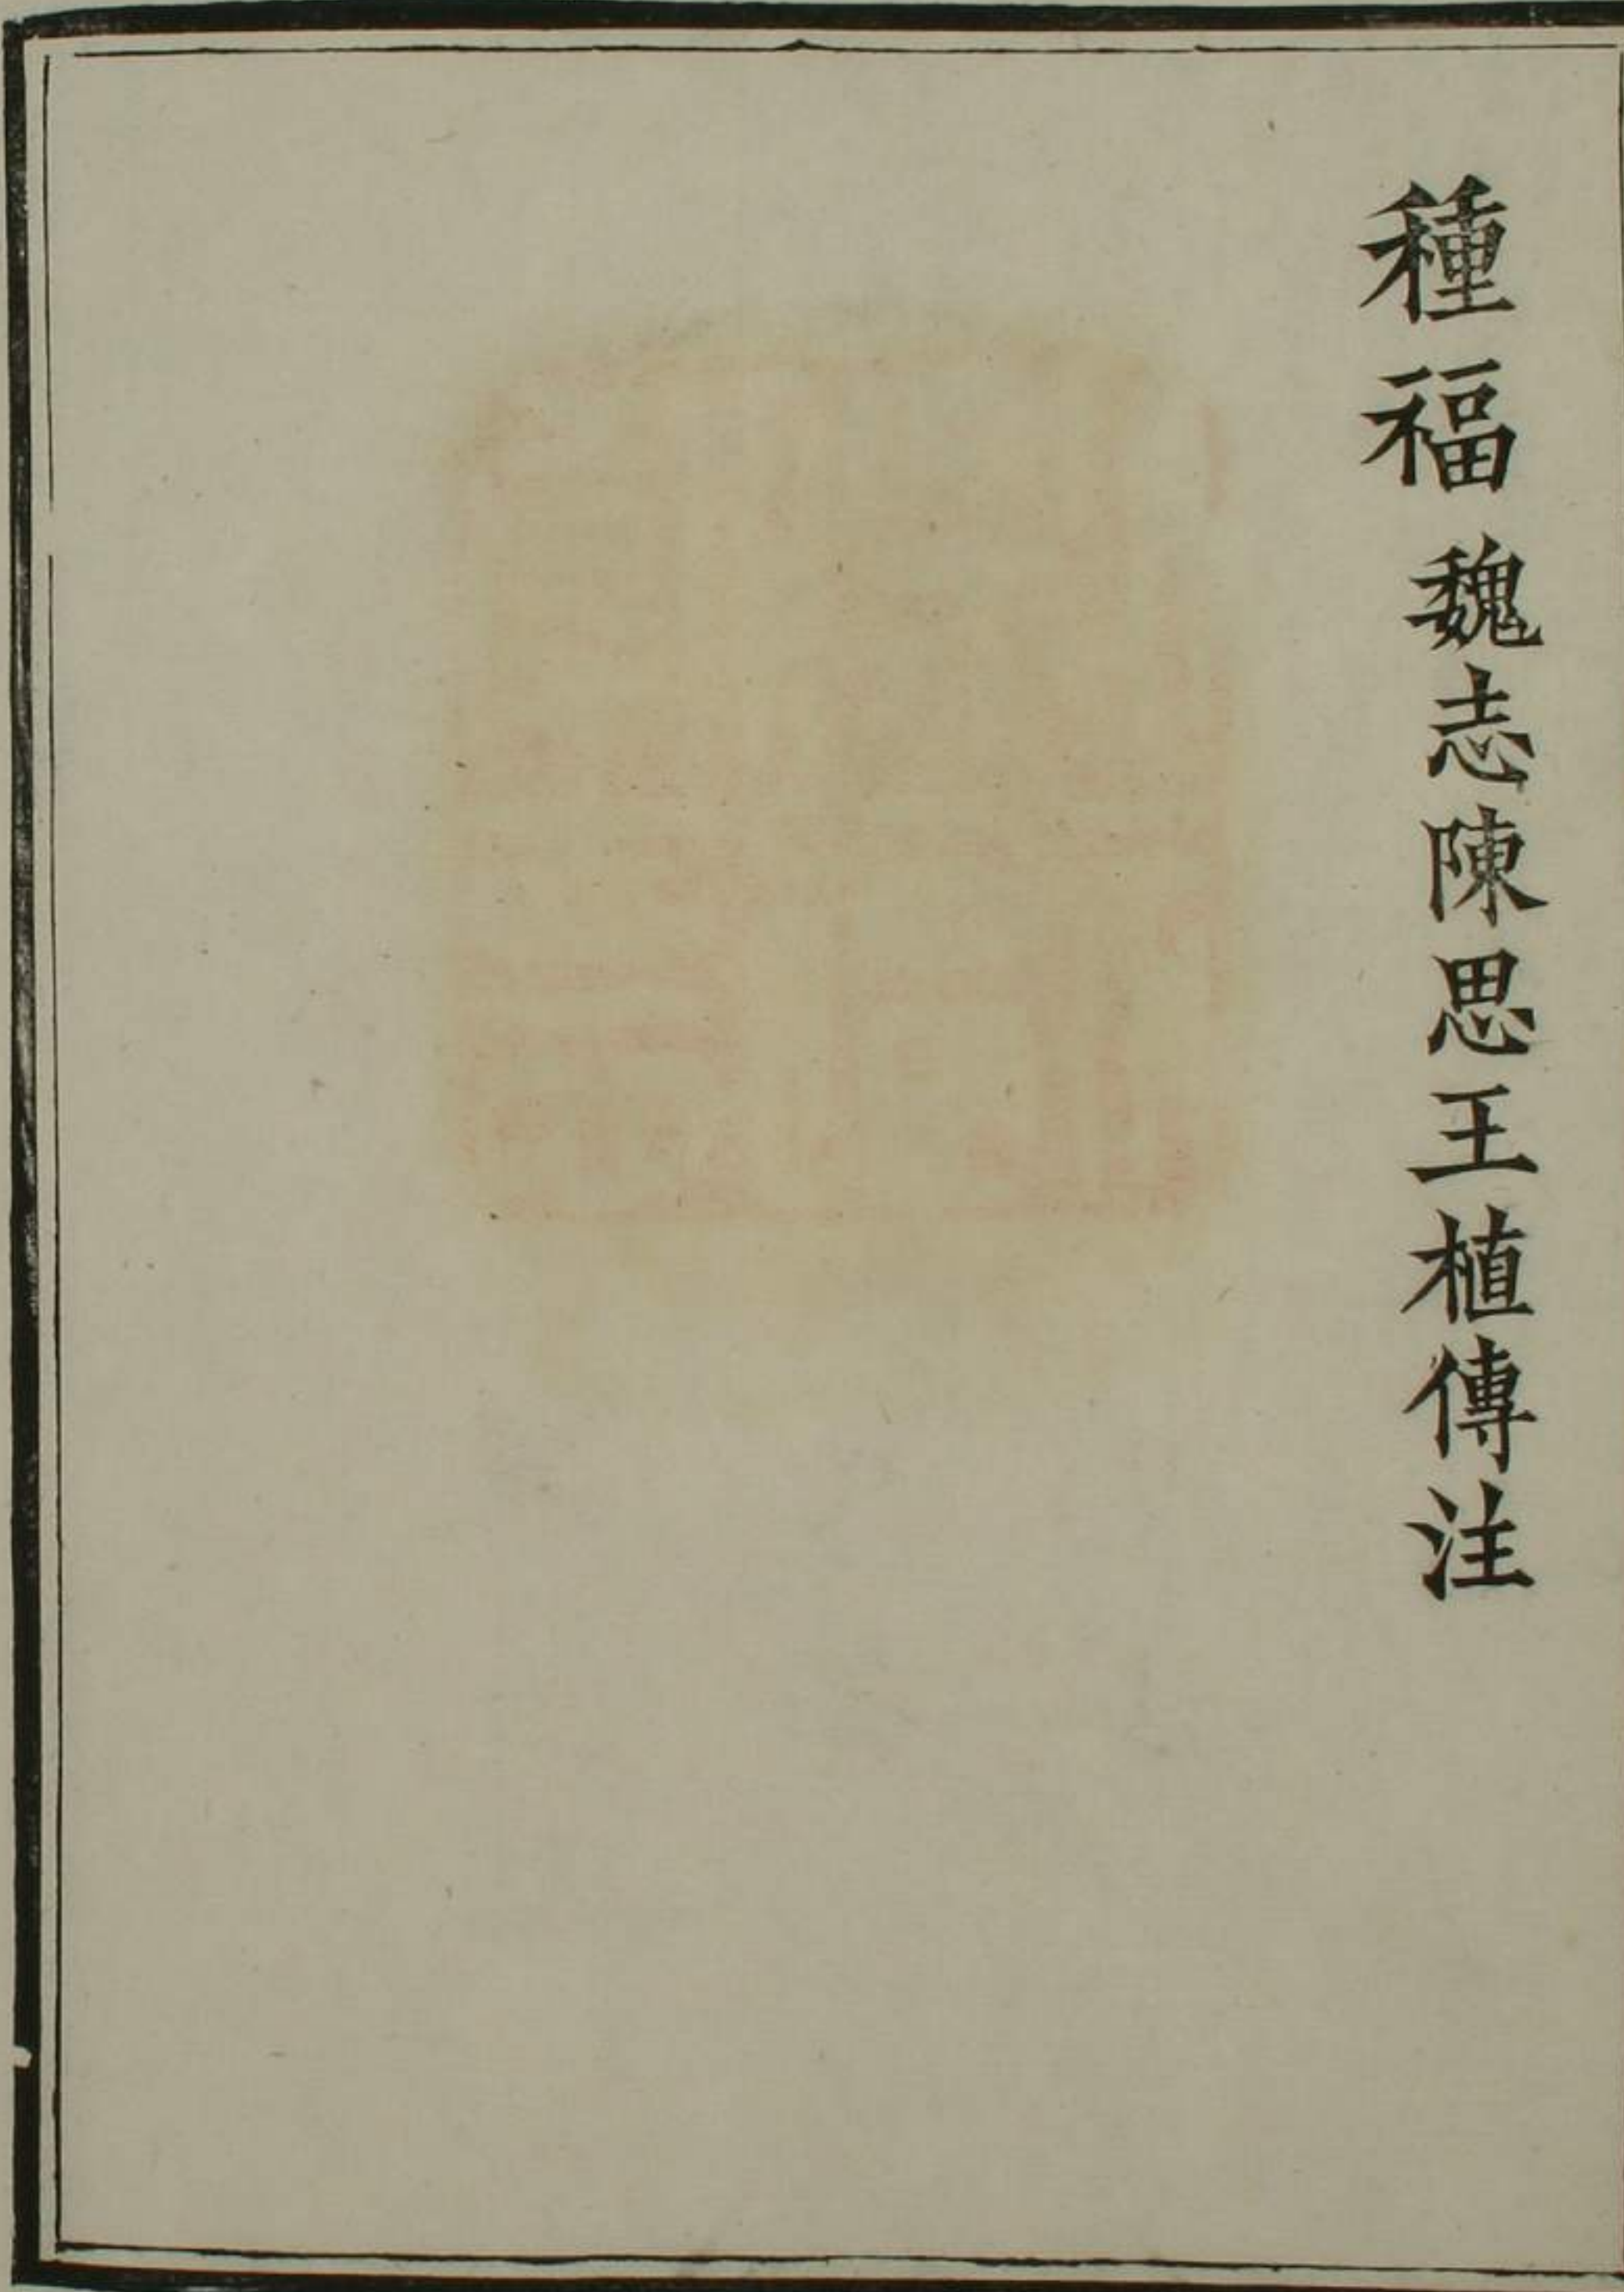 種福魏志陳思王植傳注